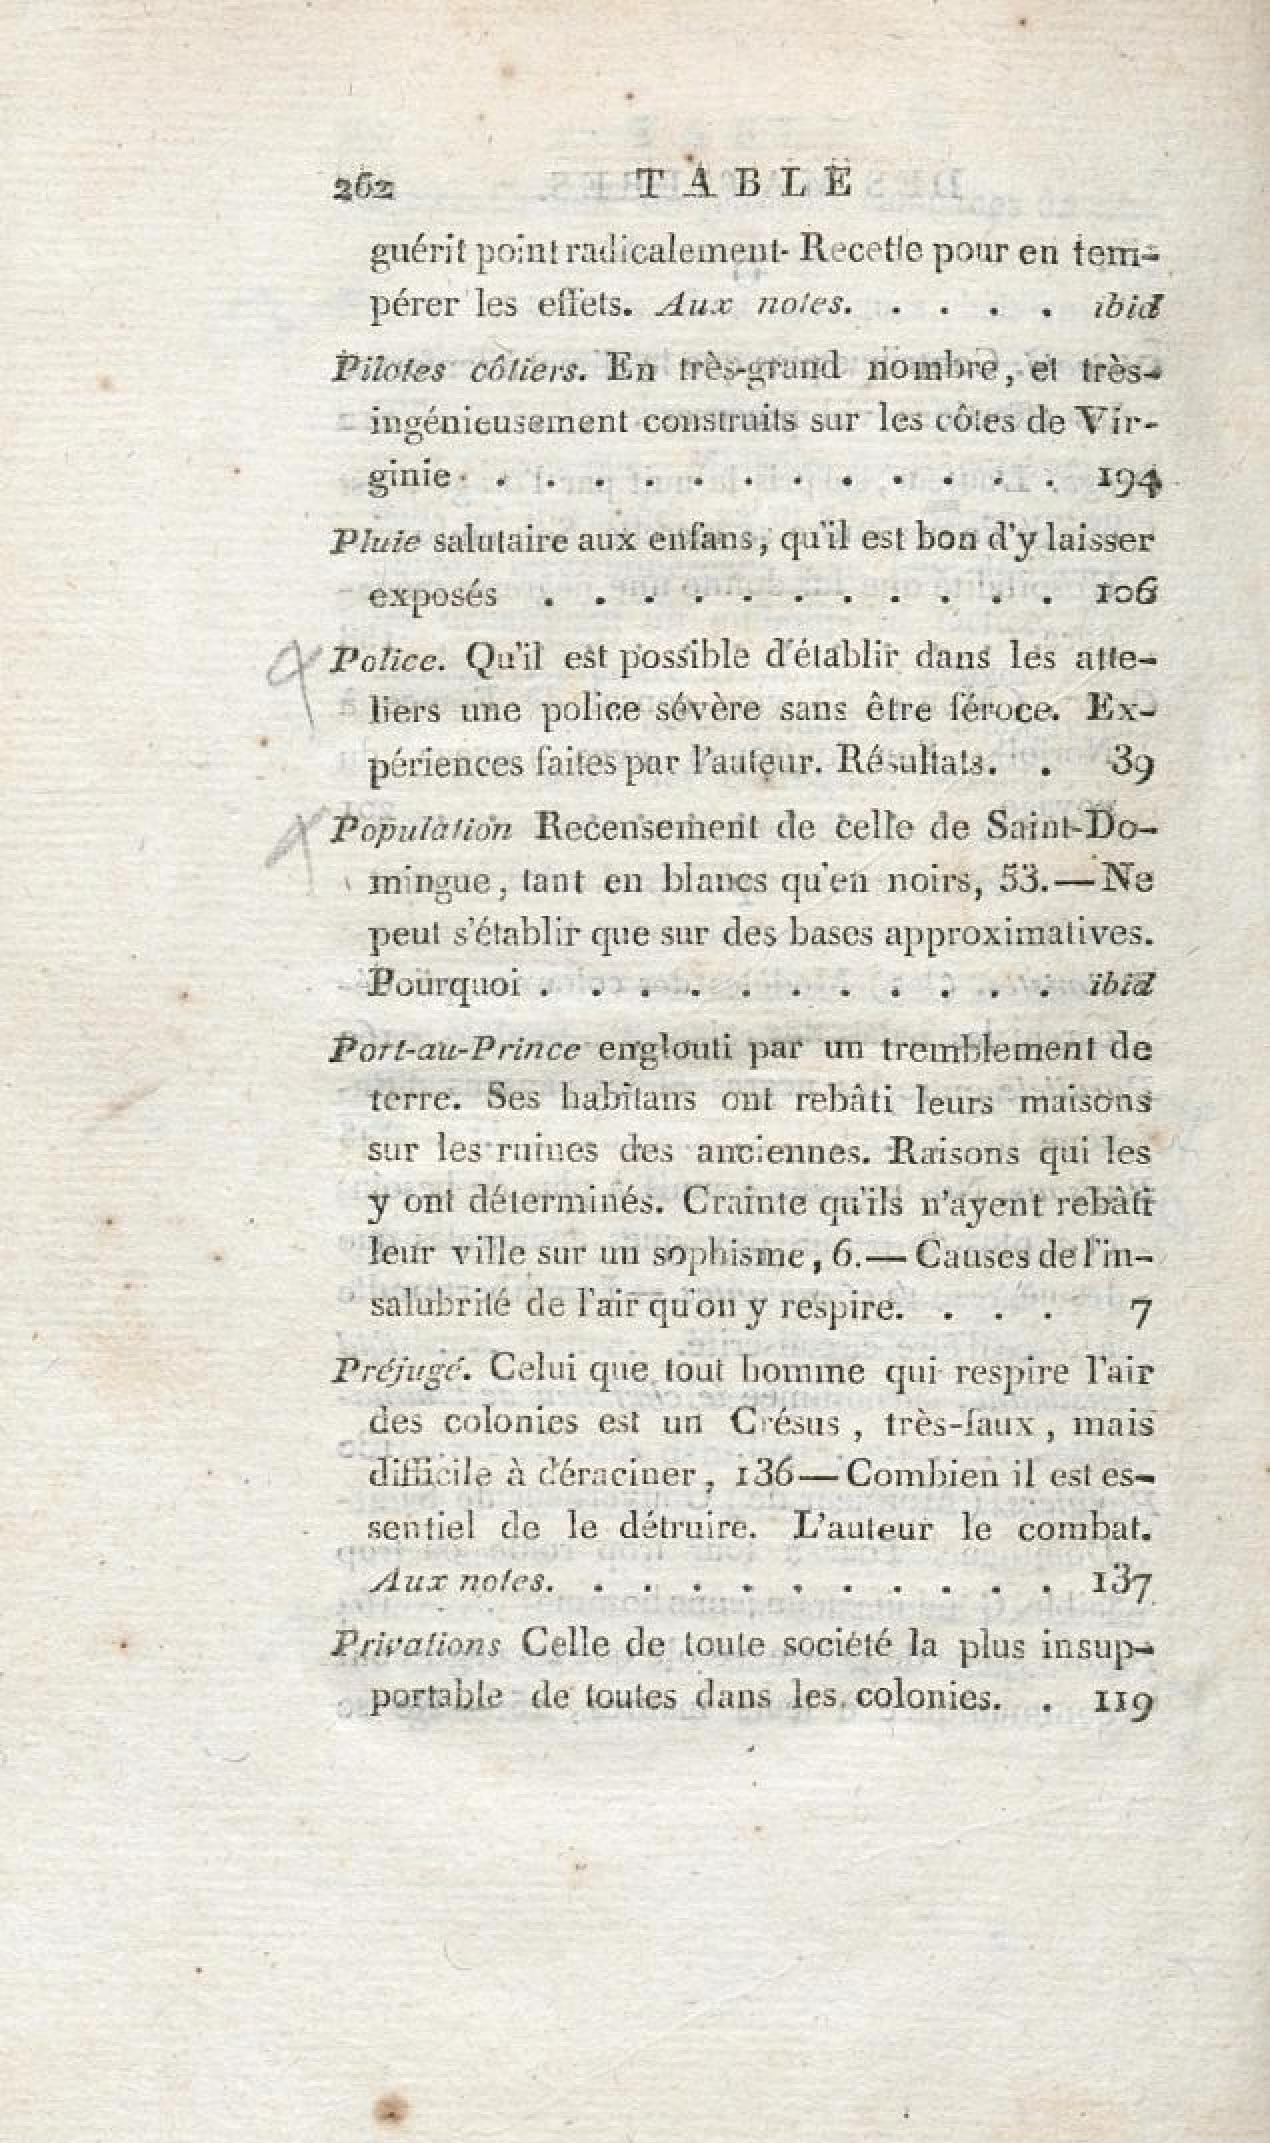 262 TABLE
guérit point radicalement. Recette pour en tem-
pérer les effets. Aux notes. . . . . ibid
Pilotes côtiers. En très-grand nombre, et très-
ingénieusement construits sur les côtes de Vir-
ginie . . . . . . . . . . . . . 194
Pluie salutaire aux enfans, qu'il est bon d'y laisser
exposés . . . . . . . . . . . 106
Police. Qu'il est possible d'établir dans les atte-
liers une police sévère sans être féroce. Ex-
périences faites par l'auteur. Résultats. . 39
Population Recensement de celle de Saint-Do-
mingue, tant en blancs qu'en noirs, 53.—Ne
peut s'établir que sur des bases approximatives.
Pourquoi . . . . . . . . . . . ibid
Port-au-Prince englouti par un tremblement de
terre. Ses habitans ont rebâti leurs maisons
sur les ruines des anciennes. Raisons qui les
y ont déterminés. Crainte qu'ils n'ayent rebâti
leur ville sur un sophisme, 6.— Causes de l'in-
salubrité de l'air qu'on y respire. . . . 7
Préjugé. Celui que tout homme qui respire l'air
des colonies est un Crésus, très-faux, mais
difficile à déraciner, 136—Combien il est es-
sentiel de le détruire. L'auteur le combat.
Aux notes. . . . . . . . . . . 137
Privations Celle de toute société la plus insup-
portable de toutes dans les colonies. . 119